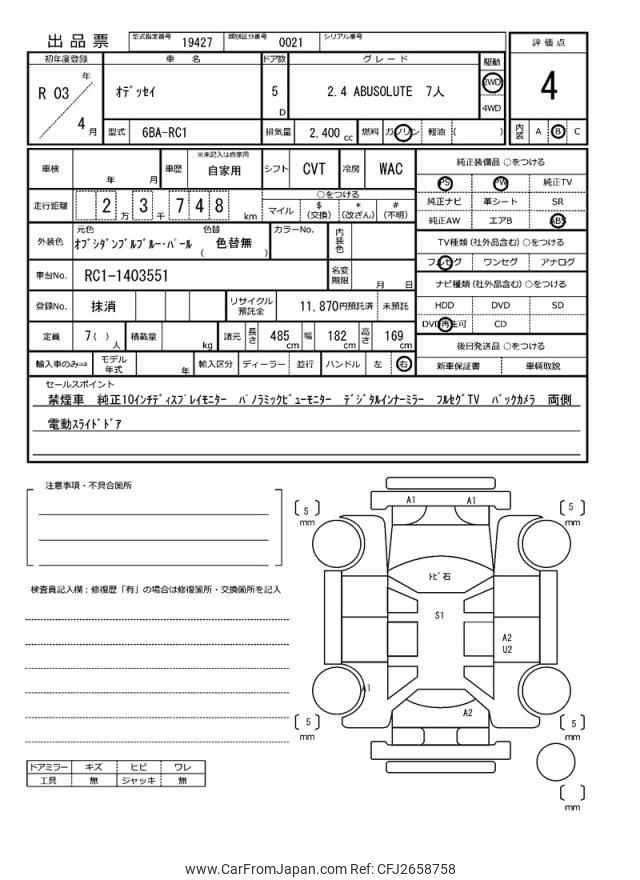 出品票 型式指定番号 19427 類別区分番号 0021 シリアル番号
初年度登録 車 名 ドア数 グレード 駆動 評価点
R 03 年 4 月
ｵﾃﾞｯｾｲ
5 D
2.4 ABUSOLUTE 7人
2WD
4WD
4
型式 6BA-RC1 排気量 2,400 cc 燃料 ガソリン 軽油 ( ) 内装 A B C
車検 年 月 車歴 ※未記入は自家用 自家用 シフト CVT 冷房 WAC
純正装備品 ○をつける
PS PW 純正TV
純正ナビ 革シート SR
純正AW エアB ABS
走行距離 2 万 3 千 7 4 8 km
○をつける
マイル $ (交換) * (改ざん) # (不明)
TV種類 (社外品含む) ○をつける
フルセグ ワンセグ アナログ
外装色 元色 ｵﾌﾞｼﾀﾞﾝﾌﾞﾙﾌﾞﾙｰ･ﾊﾟｰﾙ 色替 ( 色替無 ) カラーNo. 内装色
車台No. RC1-1403551 名変期限 月 日
ナビ種類 (社外品含む) ○をつける
HDD DVD SD
DVD再生可 CD
登録No. 抹消 リサイクル預託金 11,870円預託済 未預託
定員 7 ( ) 人 積載量 kg 諸元 長さ 485 cm 幅 182 cm 高さ 169 cm
後日発送品 ○をつける
新車保証書 車輌取説
輸入車のみ⇒ モデル年式 年 輸入区分 ディーラー 並行 ハンドル 左 右
セールスポイント
禁煙車 純正10ｲﾝﾁﾃﾞｨｽﾌﾟﾚｲﾓﾆﾀｰ ﾊﾟﾉﾗﾐｯｸﾋﾞｭｰﾓﾆﾀｰ ﾃﾞｼﾞﾀﾙｲﾝﾅｰﾐﾗｰ ﾌﾙｾｸﾞTV ﾊﾞｯｸｶﾒﾗ 両側
電動ｽﾗｲﾄﾞﾄﾞｱ
注意事項・不具合箇所
検査員記入欄：修復歴「有」の場合は修復箇所・交換箇所を記入
ドアミラー キズ ヒビ ワレ
工具 無 ジャッキ 無
A1 A1
[ 5 ] mm
[ 5 ] mm
ﾄﾋﾞ石
S1
A2
U2
A1
A2
[ 5 ] mm
[ 5 ] mm
[ ] mm
www.CarFromJapan.com Ref: CFJ2658758